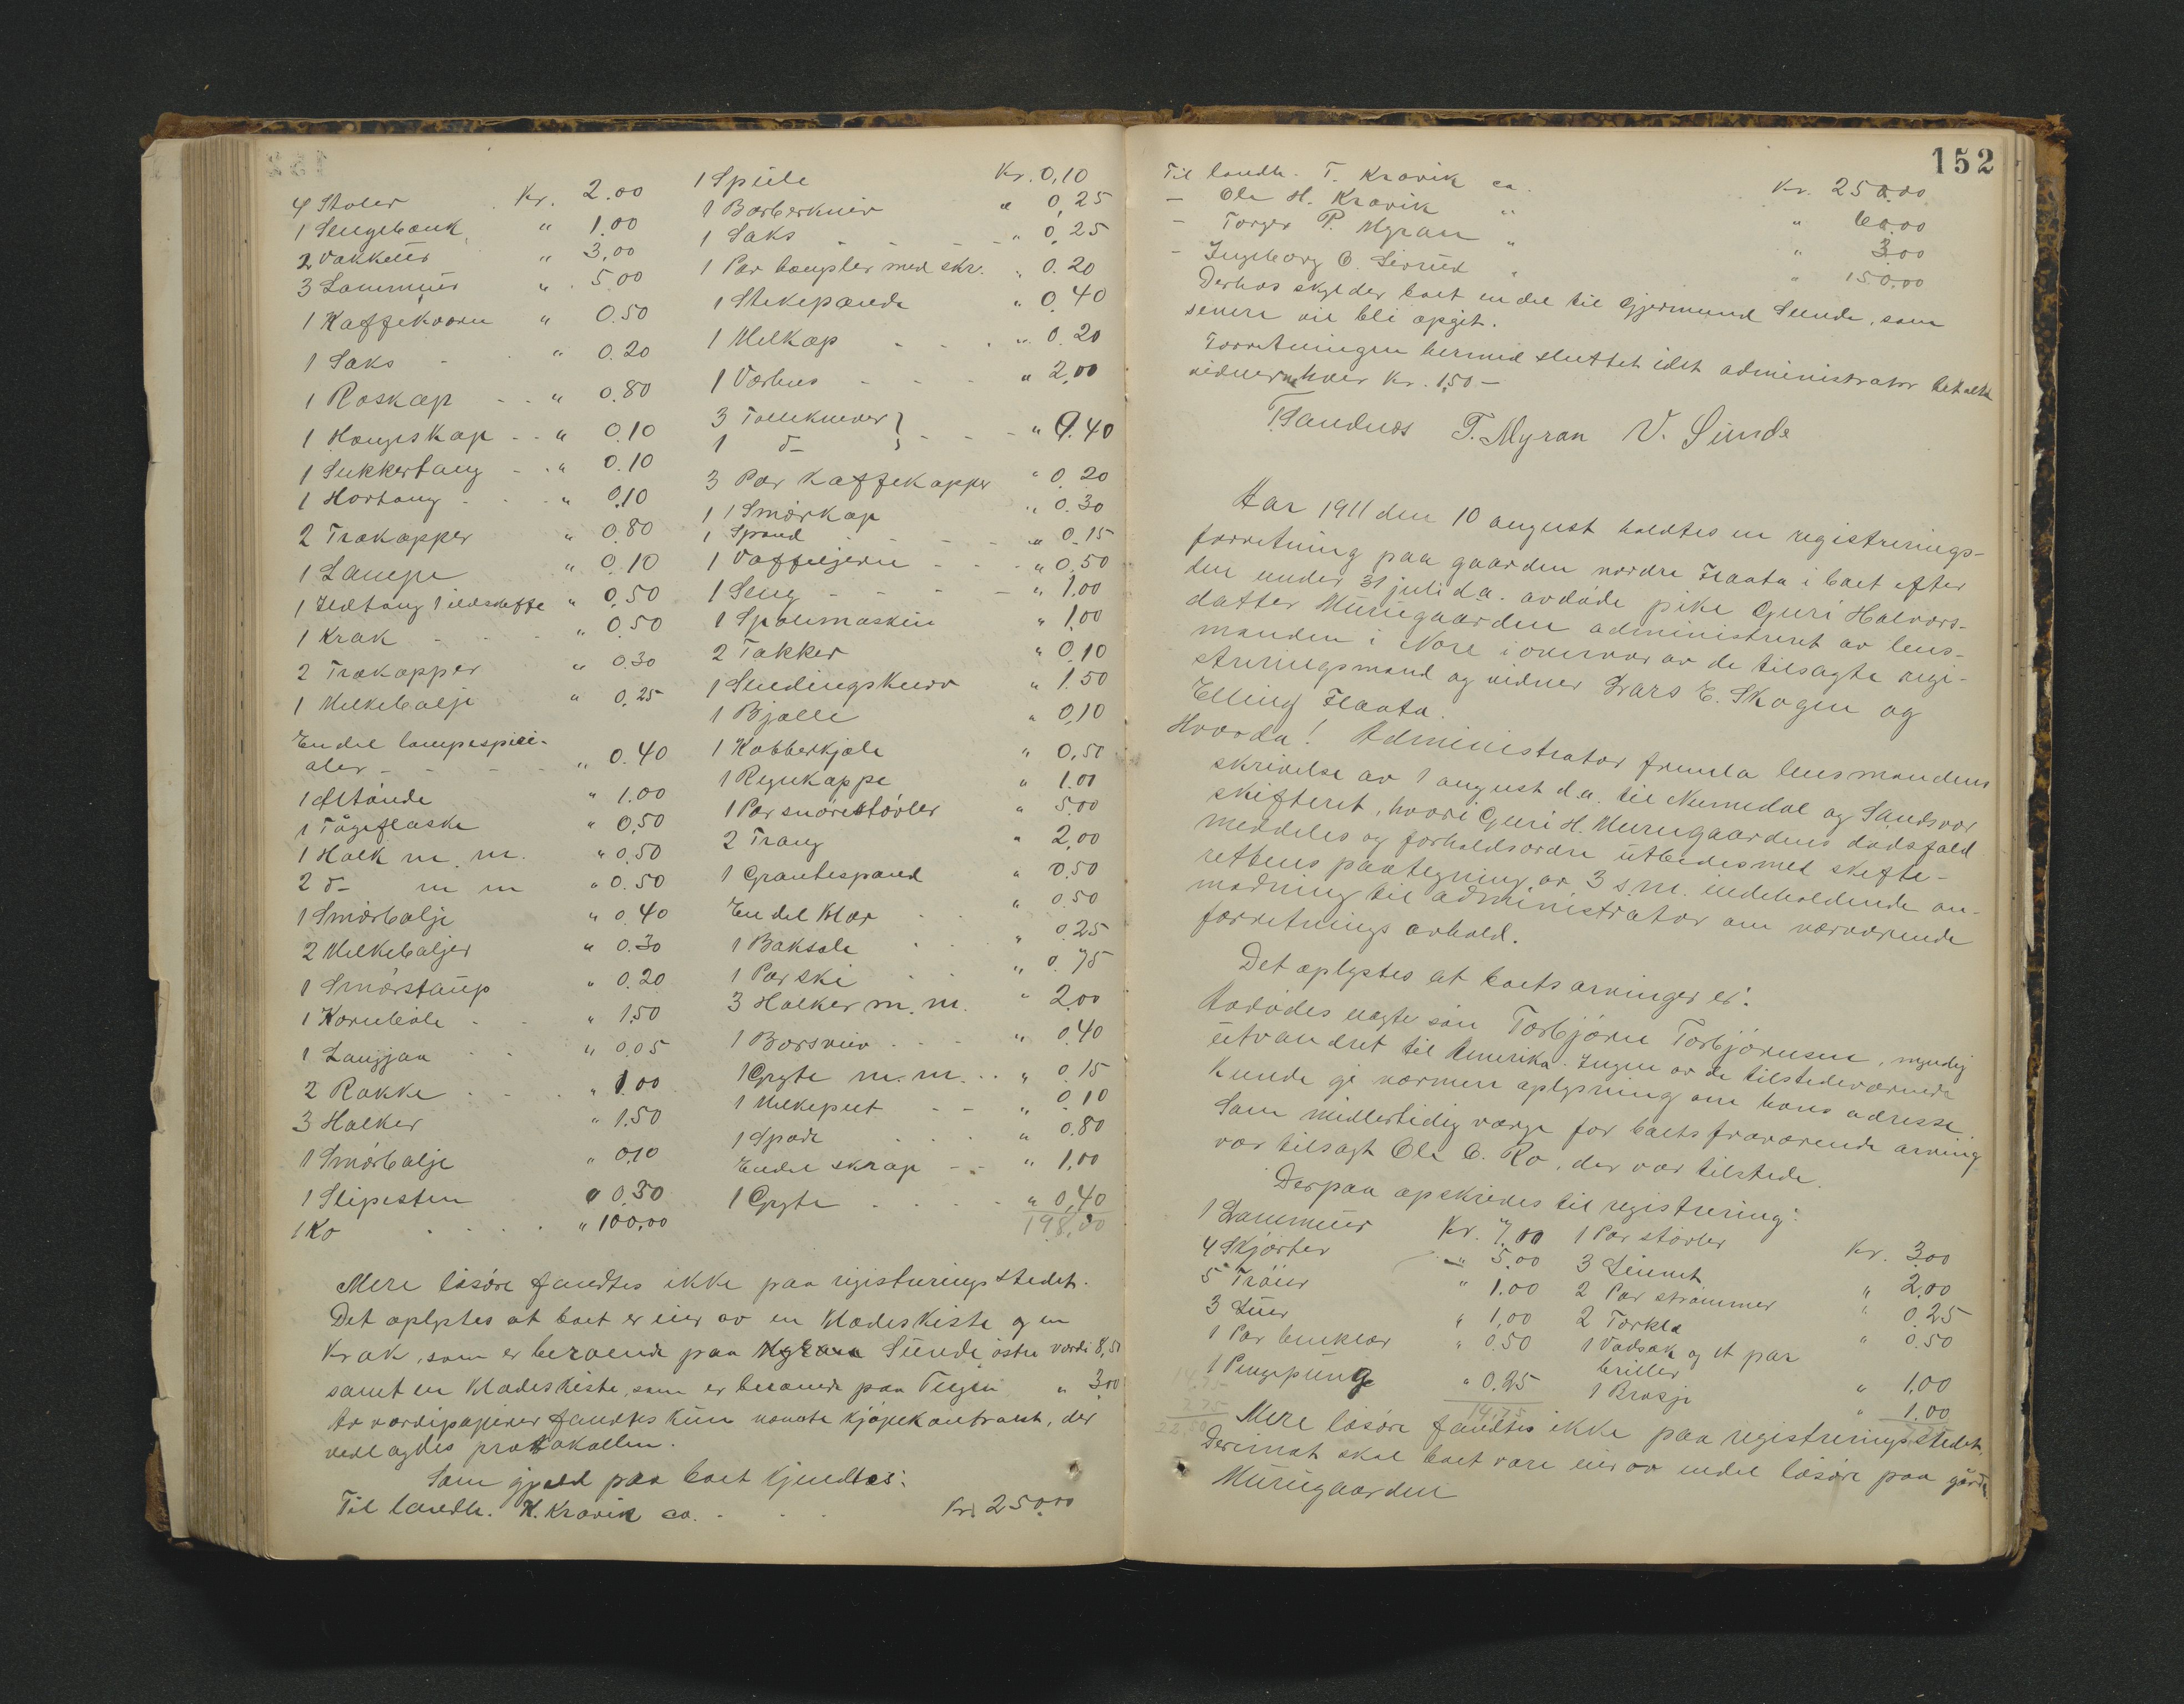 4 Stoler Kr. 2.00
1 Sengebænk " 1.00
2 " 3,00
3 " 5.00
1 Kaffekværn " 0.50
1 Saks - " 0.20
1 Roskap - - " 0.80
1 Hængeskap - - " 0.10
1 Sukkertang - - " 0.10
1 Hortang - - " 0.10
2 Trækopper " 0.80
1 Lampe " 0.10
1 Ildtang 1 ildskuffe " 0.50
1 Krak - - " 0.50
2 Trækopper " 0.30
1 Melkebalje " 0.25
En del
aler - - - " 0.40
1 Øltønde " 1.00
1 Tågeflaske " 0,50
1 Holk m. m. " 0.50
2 do- m m " 0.50
1 Smørbalje " 0.40
2 Melkebaljer " 0.30
1 Smørstaup " 0.20
1 Kornbøle - - " 1.50
1 Langjaa - - " 0.05
2 Rokke - - " 1.00
3 Holker " 1.50
1 Smørbalje " 0.10
1 Slipesten " 0.30
1 Ko - - - " 100,00
1 Speile Kr. 0,10
1 Barberkniv " 0,25
1 Saks - - - " 0,25
1 Par med skr. " 0.20
1 Stekepande " 0.40
1 Melkop - - - " 0.20
1 Værhus - - - " 2,00
3 Tollekniver }
1 do- } - - - " 0.40
3 Par Kaffekopper " 0.20
1 1 Smørkop " 0.30
1 Spand - - - " 0.15
1 Vaffeljern - - - " 0.50
1 Seng - - - " 1.00
1 Spolemaskin " 1,00
2 Takker " 0,10
1 Sendingskurv " 1.50
1 Bjølle " 0,10
1 Kobberkjele " 0,50
1 Regnkappe " 1.00
1 Par snørestøvler " 5.00
2 Traug " 2,00
1 Grøutespand " 0.50
En del Klær - - " 0.50
1 Baksele - - " 0.25
1 Par ski - - " 0.75
3 Holker m. m. " 2.00
1 Borsveiv - - - " 0.40
1 Gryte m. m. - - " 0.15
1 Melkeput - - " 0.10
1 Spade - - - " 0.80
Endel skrap - - " 1,00
1 Gryte - - - " 0,40
198,00
Mere løsøre fandtes ikke paa registreringsstedet.
Det oplystes at boet er eier av en Klædeskiste og en
Krak, som er beroende paa Sünde østre værdi 8,50
samt en Klædeskiste, som er beroende paa Teigen " 3,00
Av værdipapirer fandtes kun nævnte kjøpekontrakt, der
vedlagdes protokollen.
Som gjæld paa boet kjendtes:
Til landh. H. Kravik ca. - - - Kr. 250.00
152
Til landh. T. Kravik ca. Kr. 250.00
- Ole H. Kravik " " 60.00
- Torger P. Myran " " 3.00
- Ingeborg O. " " 150.00
Derhos skylder boet en del til Gjermund Sunde, som
senere vil bli opgit.
Forretningen hermed sluttet idet administrator betalte
vidnerne hver Kr. 1,50 -
T. Sandnes T. Myran V. Sünde
Aar 1911 den 10 august holdtes en registrerings-
forretning paa gaarden nordre Flaata i boet efter
den under 31 juli d.a. avdøde pike Guri Halvors-
datter Mürügaarden administreret av lens-
manden i Nore i overvær av de tilsagte regi-
streringsmænd og vidner Lars E. Skogen og
Elling Flaata.
Hvorda! Administrator fremla lensmandens
skrivelse av 1 august d.a. til Numedal og Sandsvær
skifteret, hvori Guri H. Murugaardens dødsfald
meddeles og forholdsordre utbedes med skifte-
rettens paategning av 3 s.m. indeholdende an-
modning til administrator om nærværende
forretnings avhold.
Det oplystes at boets arvinger er:
Avdødes uegte søn Torbjørn Torbjørnsen, myndig
utvandret til Amerika. Ingen av de tilstedeværende
kunde gi nærmere oplysning om hans adresse.
Som midlertidig værge for boets fraværende arving
var tilsagt Ole O. Ro, der var tilstede.
Derpaa opskreves til registrering:
1 Lammuer Kr. 7,00 1 Par støvler Kr. 3.00
4 Skjorter " 5.00 3 " 2,00
5 Trøier " 1.00 2 Par strømmer " 0,25
3 Lüer " 1,00 2 Tørklæ " 0.50
1 Par benklær " 0.50 1 Vadsæk og et par
briller " 1,00
1 Pengepüng " 0.25 1 Brosje " 1.00
14.75
Mere løsøre fandtes ikke paa registreringsstedet.
Derimot skal boet være eier av endel løsøre paa gården
Mürügaarden